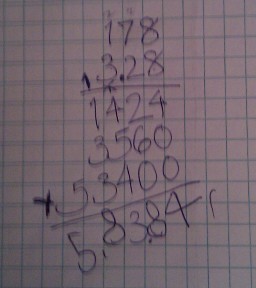 178
3.28
1424
3560
53400
5.8384